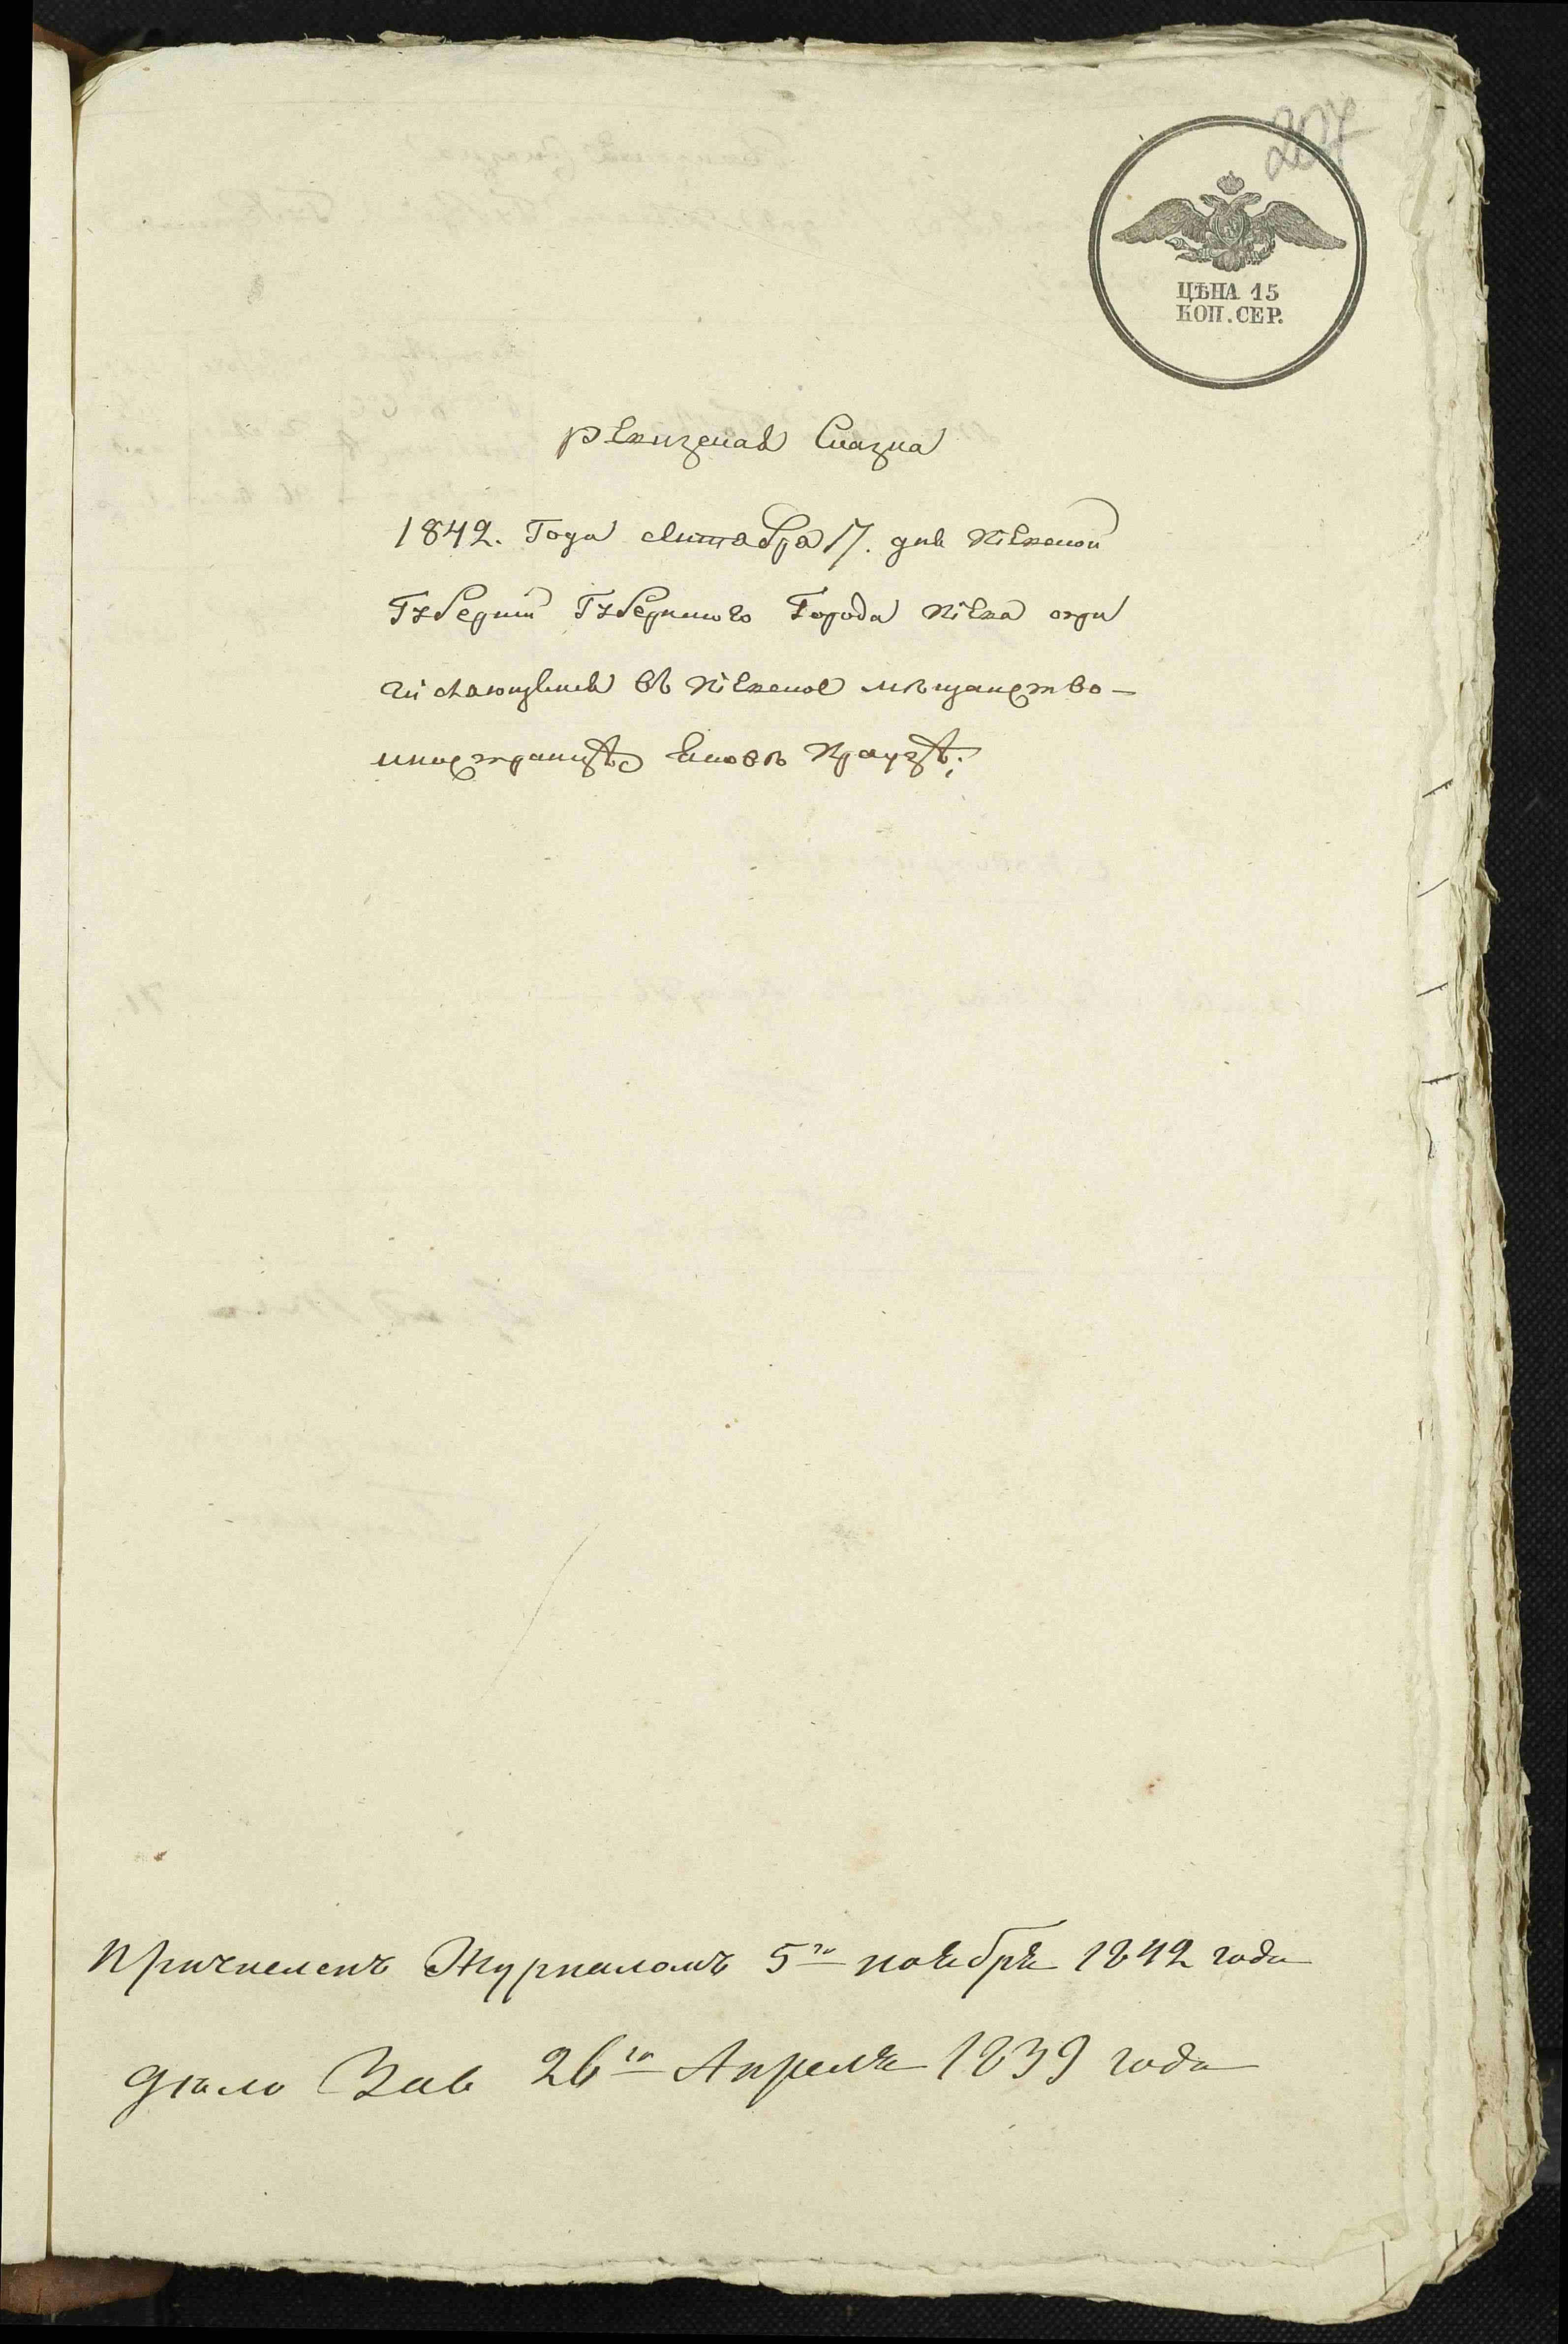 207
ЦѢНА 15
КОП. СЕР.
Ревизская Сказка
1842. Года Октября 17. дня Кіевской
Губерніи Губернского Города Кіева о при
числяющемся въ Кіевское мѣщанство
иностранцѣ Яковѣ Краузѣ;
Причисленъ Журналомъ 5го ноября 1842 года
дѣло 26го Апреля 1839 года